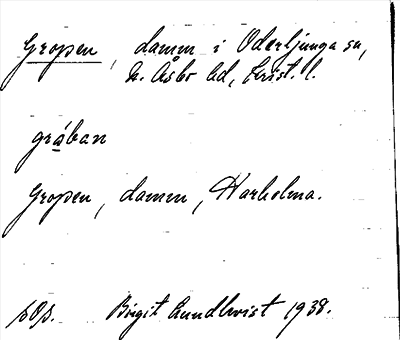 Gropen, damm i Oderljunga sn,
N. Åsbo hd, Krist. l.
gråban
Gropen, damm, Harholma.
sOs. Birgit Lundkvist 1938.